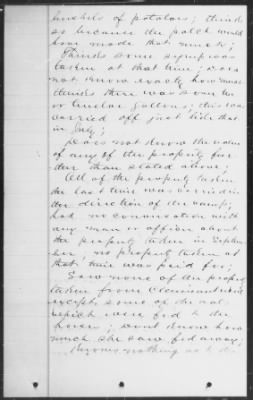 bushels of potatoes; thinks
so because the patch would
have made that much;
Thinks some syrup was
taken at that time; does
not know exactly how much
thinks there was some ten
or twelve gallons; this was
carried off just like that
in July;
Does not know the value
of any of the property fur
ther than stated above;
All of the property taken
the last time was carried in
the direction of the camp;
had no conversation with
any man or officer about
the property taken in
no property taken at
that time was paid for;
Saw none of the property
taken from claimant used
except some of the oats
which were fed to the
horses; dont know how
much she saw fed away;
Knows nothing as to